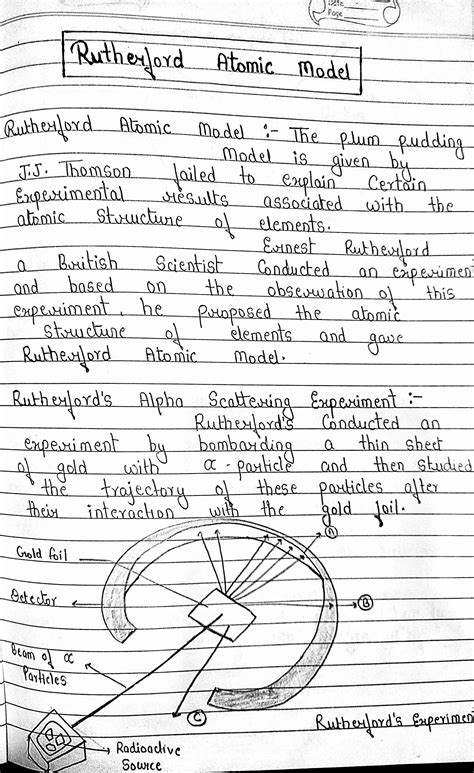 Date
Page
Rutherford Atomic Model
Rutherford Atomic Model :- The plum pudding
Model is given by
J.J. Thomson failed to explain Certain
Experimental results associated with the
atomic Structure of elements.
Ernest Rutherford
a British Scientist Conducted an experiment
and based on the observation of this
experiment, he purposed the atomic
Structure of elements and gave
Rutherford Atomic Model.
Rutherford's Alpha Scattering Experiment :-
Rutherford's Conducted an
experiment by bombarding a thin sheet
of gold with α-particle and then studied
the trajectory of these particles after
their interaction with the gold foil.
A
Gold foil
Detector
B
Beam of α
Particles
C
Rutherford's Experimen
Radioactive
Source